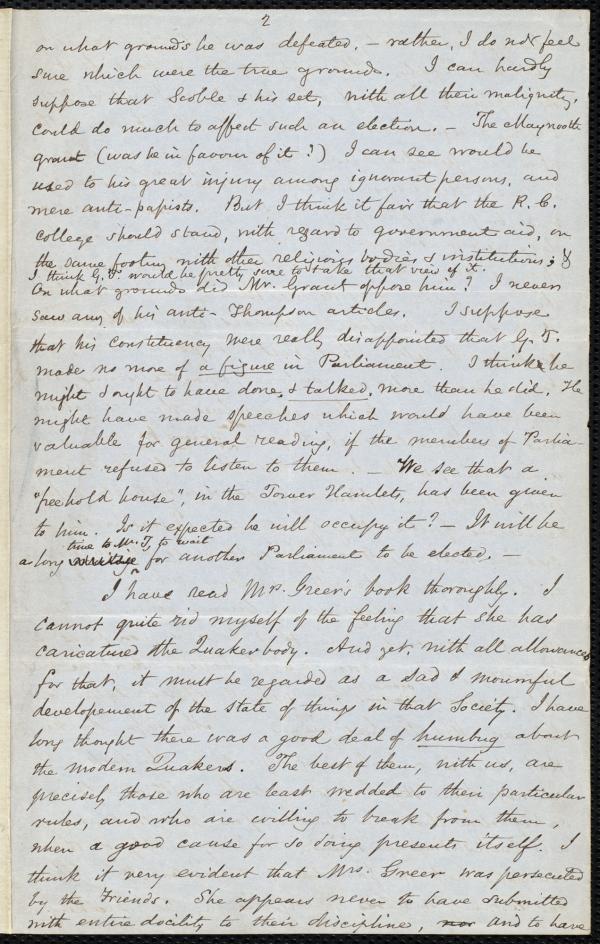 2
on what grounds he was defeated, – rather, I do not feel
sure which were the true grounds. I can hardly
suppose that Scoble & his set, with all their malignity,
could do much to affect such an election. – The Maynooth
grant (was he in favour of it?) I can see would be
used to his great injury among ignorant persons, and
mere anti-papists. But I think it fair that the R. C.
college should stand, with regard to government aid, on
the same footing with other religious bodies & institutions; &
I think G. T. would be pretty sure to take that view of it.
On what grounds did Mr. Grant oppose him? I never
saw any of his anti-Thompson articles. I suppose
that his constituency were really disappointed that G. T.
made no more of a figure in Parliament. I think he
might & ought to have done, & talked, more than he did. He
might have made speeches which would have been
valuable for general reading, if the members of Parlia-
ment refused to listen to them. – We see that a
"freehold house", in the Tower Hamlets, has been given
to him. Is it expected he will occupy it? – It will be
time to Mr. T, to wait
a long for another Parliament to be elected. –
I have read Mrs. Greer's book thoroughly. I
cannot quite rid myself of the feeling that she has
caricatured the Quaker body. And yet, with all allowances
for that, it must be regarded as a sad & mournful
developement of the state of things in that Society. I have
long thought there was a good deal of humbug about
the modern Quakers. The best of them, with us, are
precisely those who are least wedded to their particular
rules, and who are willing to break from them,
when a good cause for so doing presents itself. I
think it very evident that Mrs. Greer was persecuted
by the Friends. She appears never to have submitted
with entire docility to their discipline, nor and to have